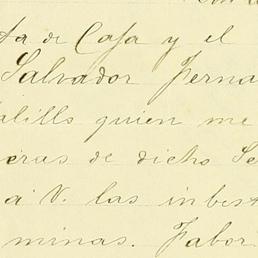 ta de Casa y el
Salvador Ferna
alills quien me
eras de dicho Se
a V. las inbest
minas. Fabor